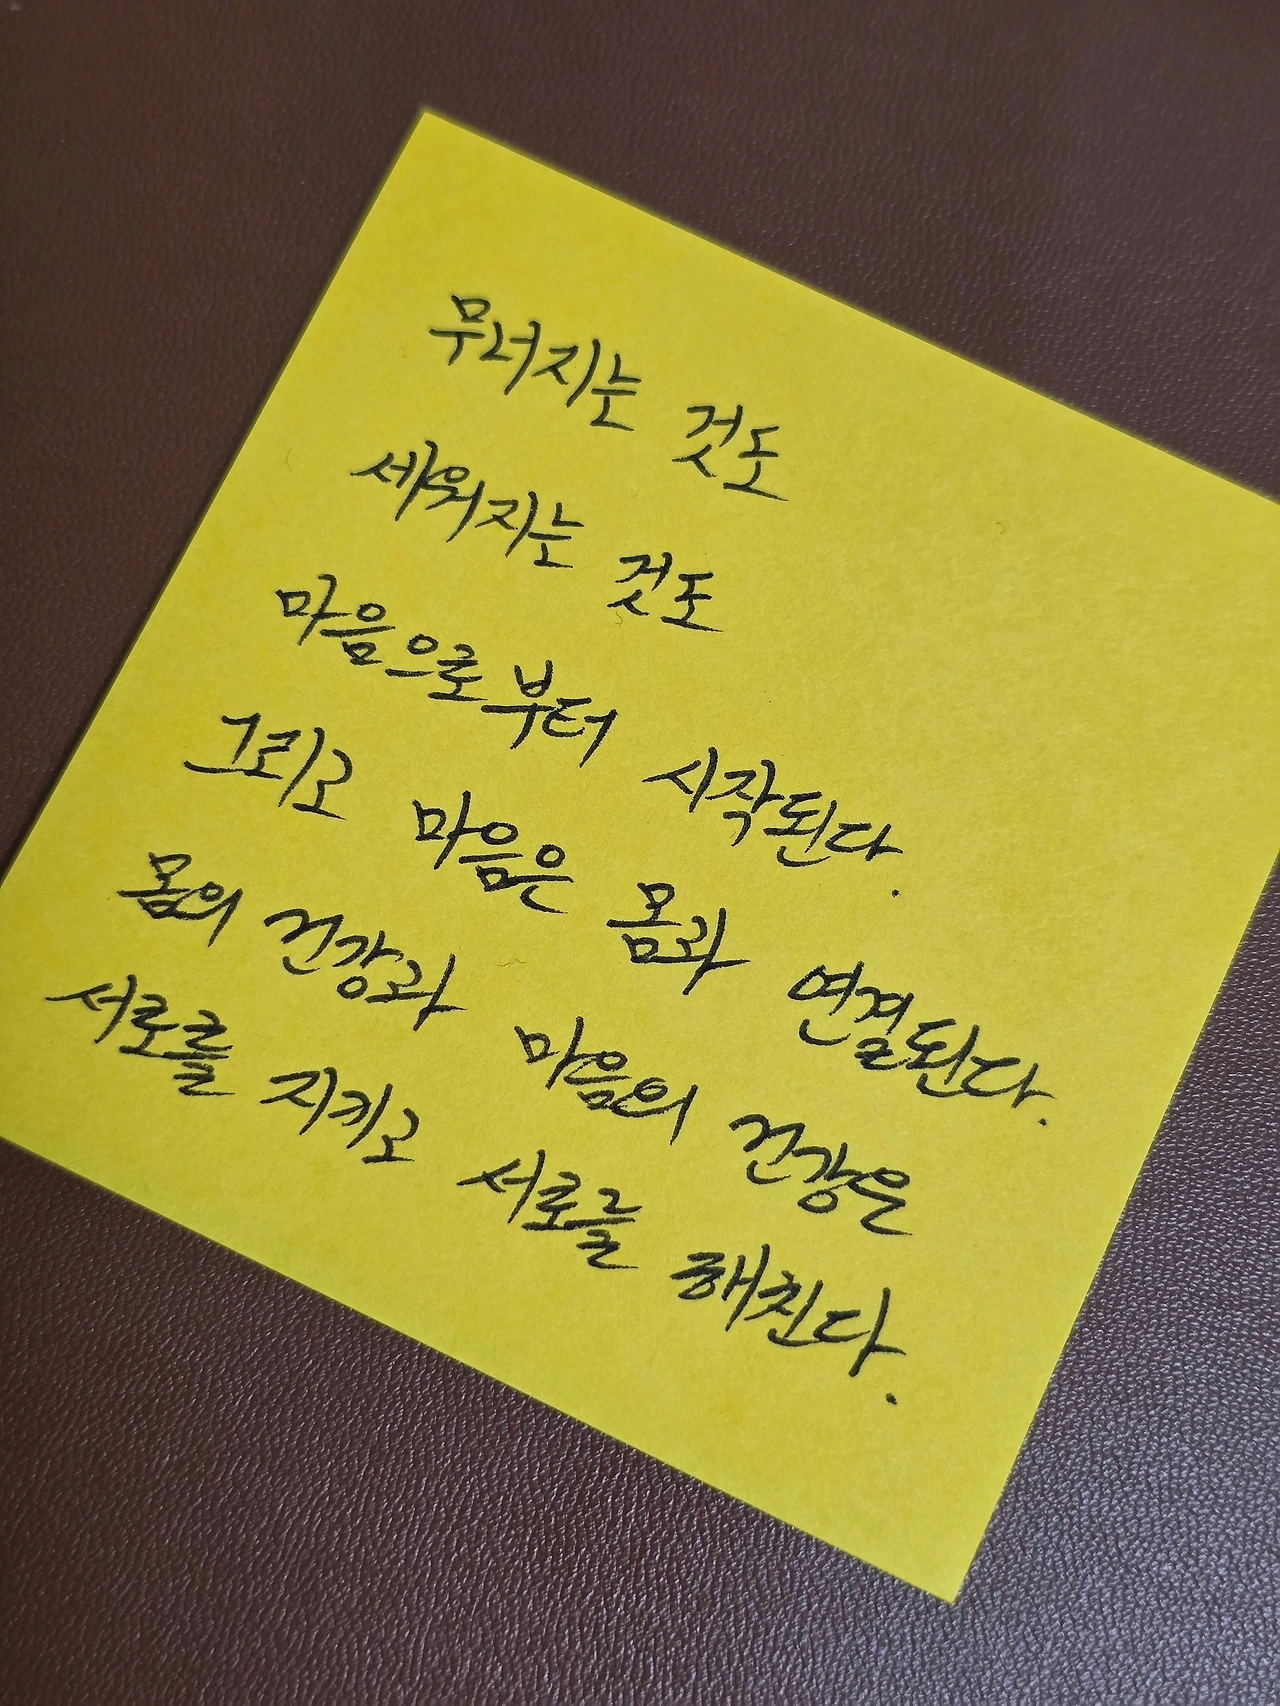 무너지는 것도
세워지는 것도
마음으로부터 시작된다.
그리고 마음은 몸과 연결된다.
몸의 건강과 마음의 건강은
서로를 지키고 서로를 해친다.